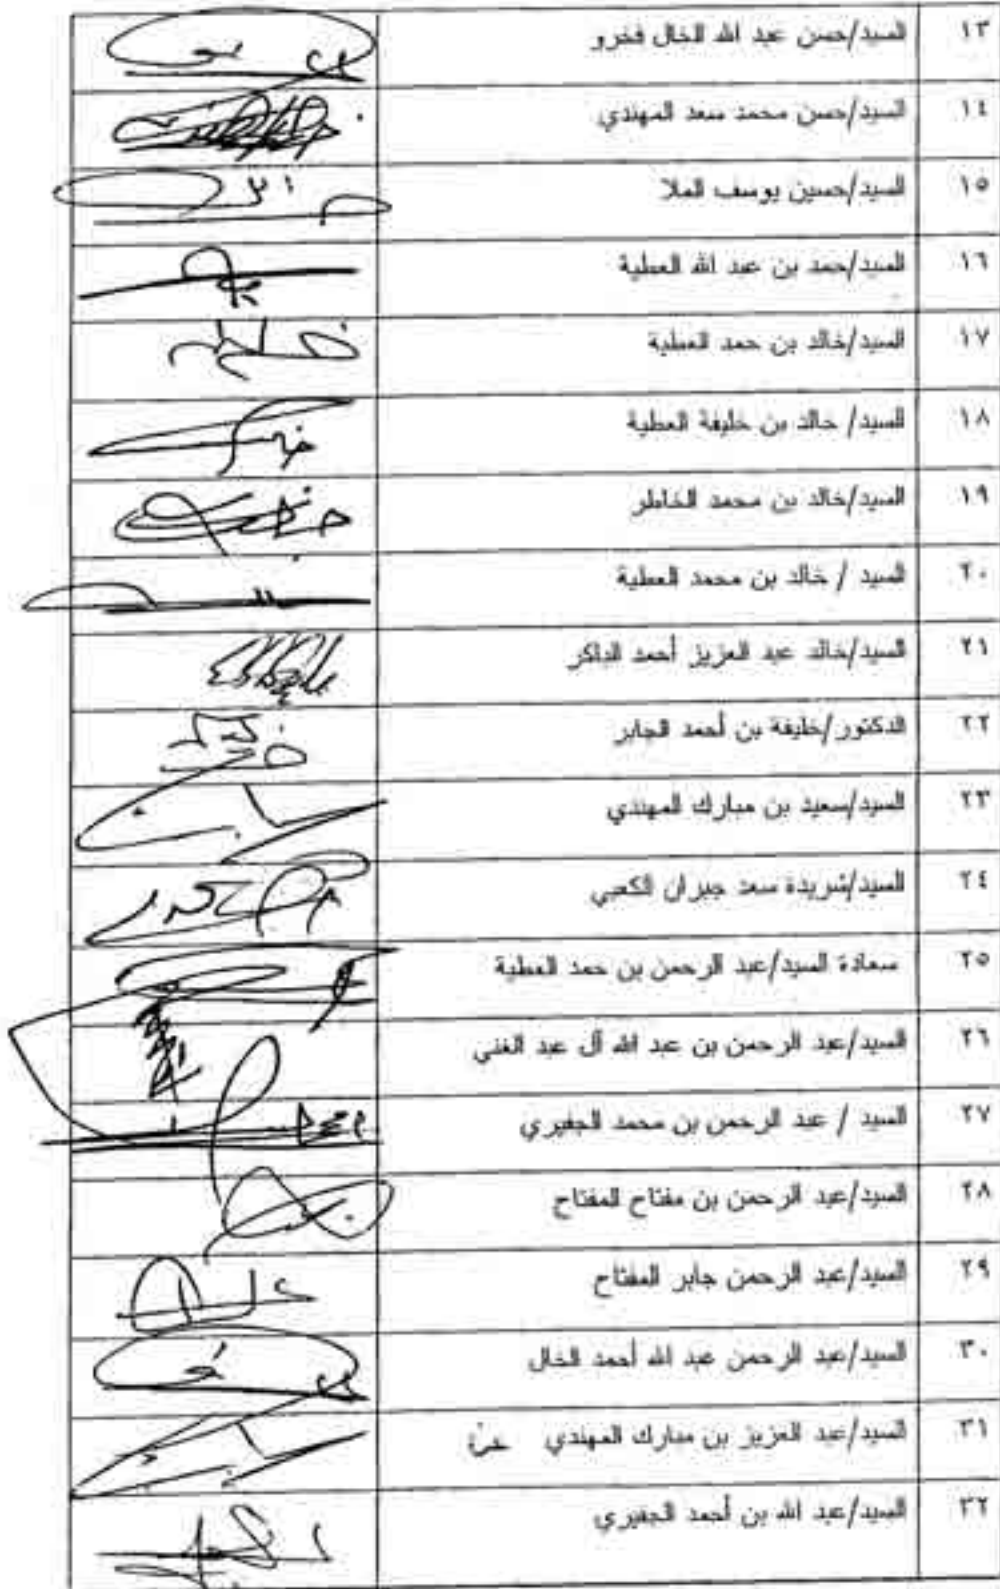 ١٣ السيد/حسن عبد الله الخال فخرو
١٤ السيد/حسن محمد سعد المهندي
١٥ السيد/حسين يوسف الملا
١٦ السيد/حمد بن عبد الله العطية
١٧ السيد/خالد بن حمد العطية
١٨ السيد/ خالد بن خليفة العطية
١٩ السيد/خالد بن محمد الخاطر
٢٠ السيد / خالد بن محمد العطية
٢١ السيد/خالد عبد العزيز أحمد الباكر
٢٢ الدكتور/خليفة بن أحمد الجابر
٢٣ السيد/سعيد بن مبارك المهندي
٢٤ السيد/شريدة سعد جبران الكعبي
٢٥ سعادة السيد/عبد الرحمن بن حمد العطية
٢٦ السيد/عبد الرحمن بن عبد الله آل عبد الغني
٢٧ السيد / عبد الرحمن بن محمد الجفيري
٢٨ السيد/عبد الرحمن بن مفتاح المفتاح
٢٩ السيد/عبد الرحمن جابر المفتاح
٣٠ السيد/عبد الرحمن عبد الله أحمد الخال
٣١ السيد/عبد العزيز بن مبارك المهندي
٣٢ السيد/عبد الله بن أحمد الجفيري